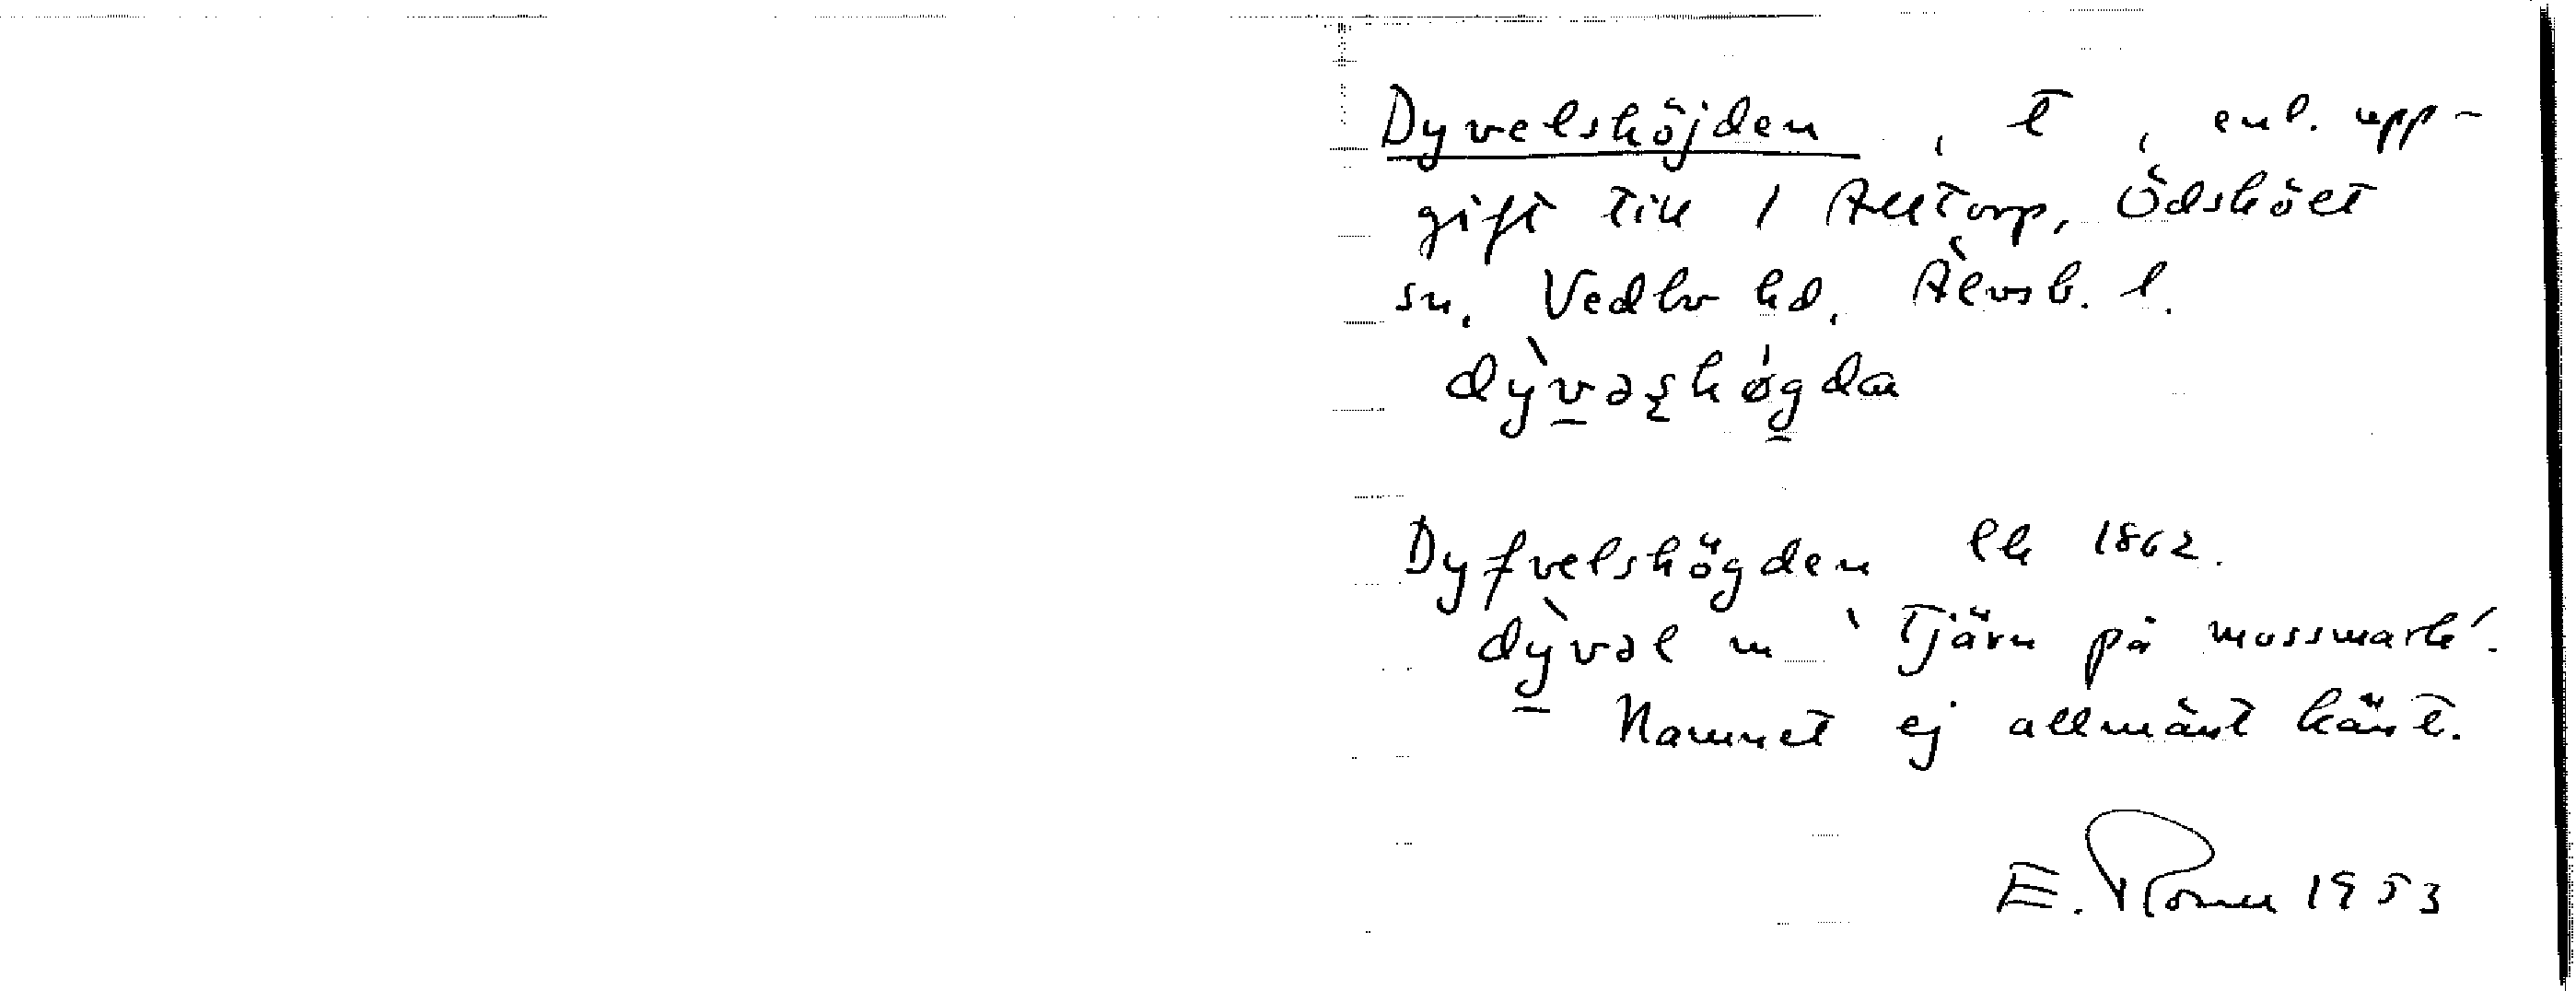 Dyvelshöjden , t , enl. upp-
gift till 1 Alltorp, Ödskölt
sn, Vedbo hd, Älvsb. l.
dỳvəʂhǿgda
Dyfvelshögden lk 1862.
dỳvəl m 'tjärn på mossmark'.
Namnet ej allmänt känt.
E. 1953